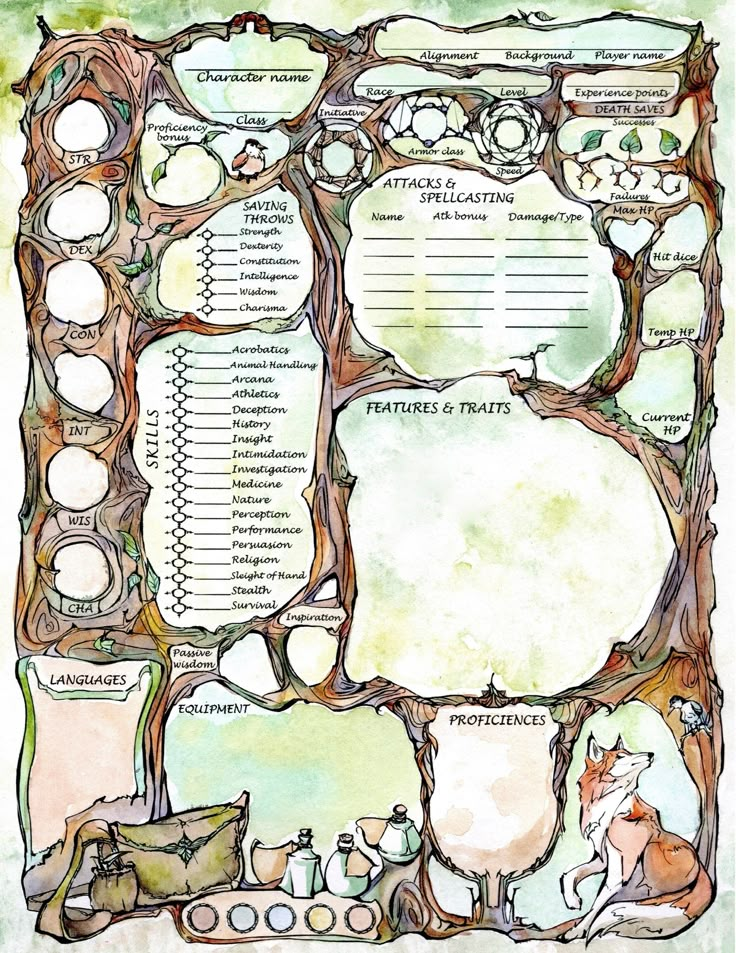 Character name
Class
Alignment Background Player name
Race Level
Experience points
DEATH SAVES
Successes
Failures
Initiative
Armor class
Speed
Proficiency
bonus
STR
DEX
CON
INT
WIS
CHA
SAVING
THROWS
Strength
Dexterity
Constitution
Intelligence
Wisdom
Charisma
ATTACKS &
SPELLCASTING
Name Atk bonus Damage/Type
Max HP
Hit dice
Temp HP
Current
HP
SKILLS
Acrobatics
Animal Handling
Arcana
Athletics
Deception
History
Insight
Intimidation
Investigation
Medicine
Nature
Perception
Performance
Persuasion
Religion
Sleight of Hand
Stealth
Survival
FEATURES & TRAITS
Inspiration
Passive
wisdom
LANGUAGES
EQUIPMENT
PROFICIENCES